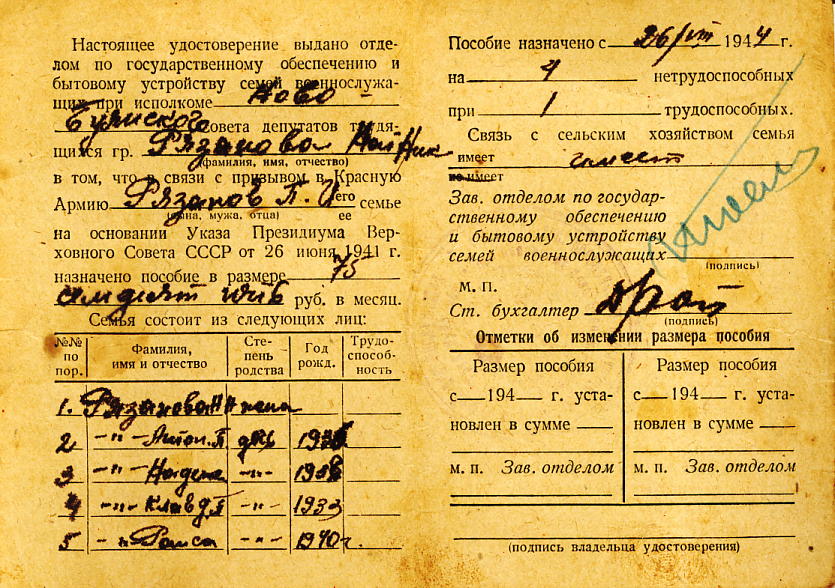 Настоящее удостоверение выдано отде-
лом по государственному обеспечению и
бытовому устройству семей военнослужа-
щих при исполкоме Ново-
Буянского совета депутатов трудя-
щихся гр. Рязанова Ник
(фамилия, имя, отчество)
в том, что в связи с призывом в Красную
Армию Рязанов П. И его семье
(сына, мужа, отца) ее
на основании Указа Президиума Вер-
ховного Совета СССР от 26 июня 1941 г.
назначено пособие в размере 75
руб. в месяц.
Семья состоит из следующих лиц:
№№ по пор. Фамилия, имя и отчество Сте-пень родства Год рожд. Трудо-способ-ность
1. Рязанова жена
2 -"- Антон. П дчь
3 -"- Надежа -"-
4 -"- Клавд П -"- 1933
5 -"- Раиса -"- 1940 г.
Пособие назначено с 26/VIII 1944 г.
на 4 нетрудоспособных
при 1 трудоспособных.
Связь с сельским хозяйством семья
имеет имеет
не имеет
Зав. отделом по государ-
ственному обеспечению
и бытовому устройству
семей военнослужащих
(подпись)
М. П.
Ст. бухгалтер
(подпись)
Отметки об изменении размера пособия
Размер пособия
с 194 г. уста-
новлен в сумме
м. п. Зав. отделом
Размер пособия
с 194 г. уста-
новлен в сумме
м. п. Зав. отделом
(подпись владельца удостоверения)